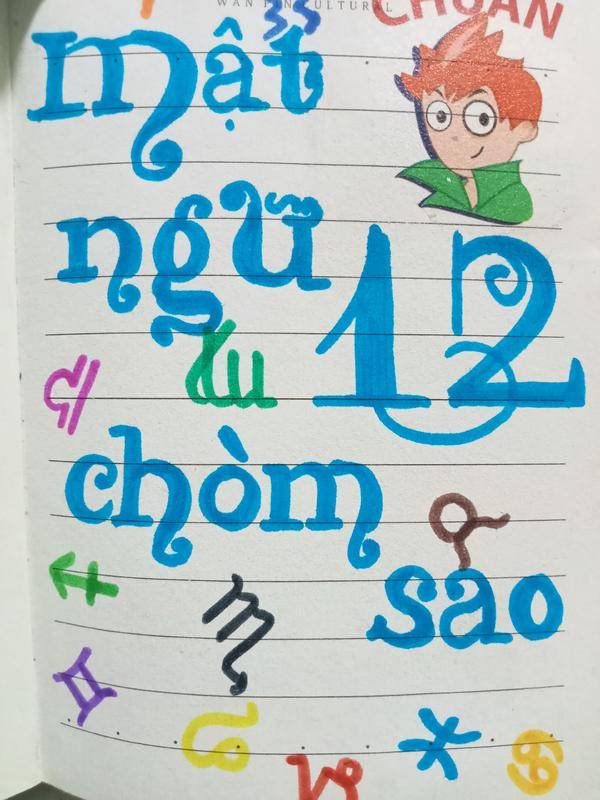 WAN PIN CULTURAL
CHUẨN
mật
ngữ
12
chòm
sao